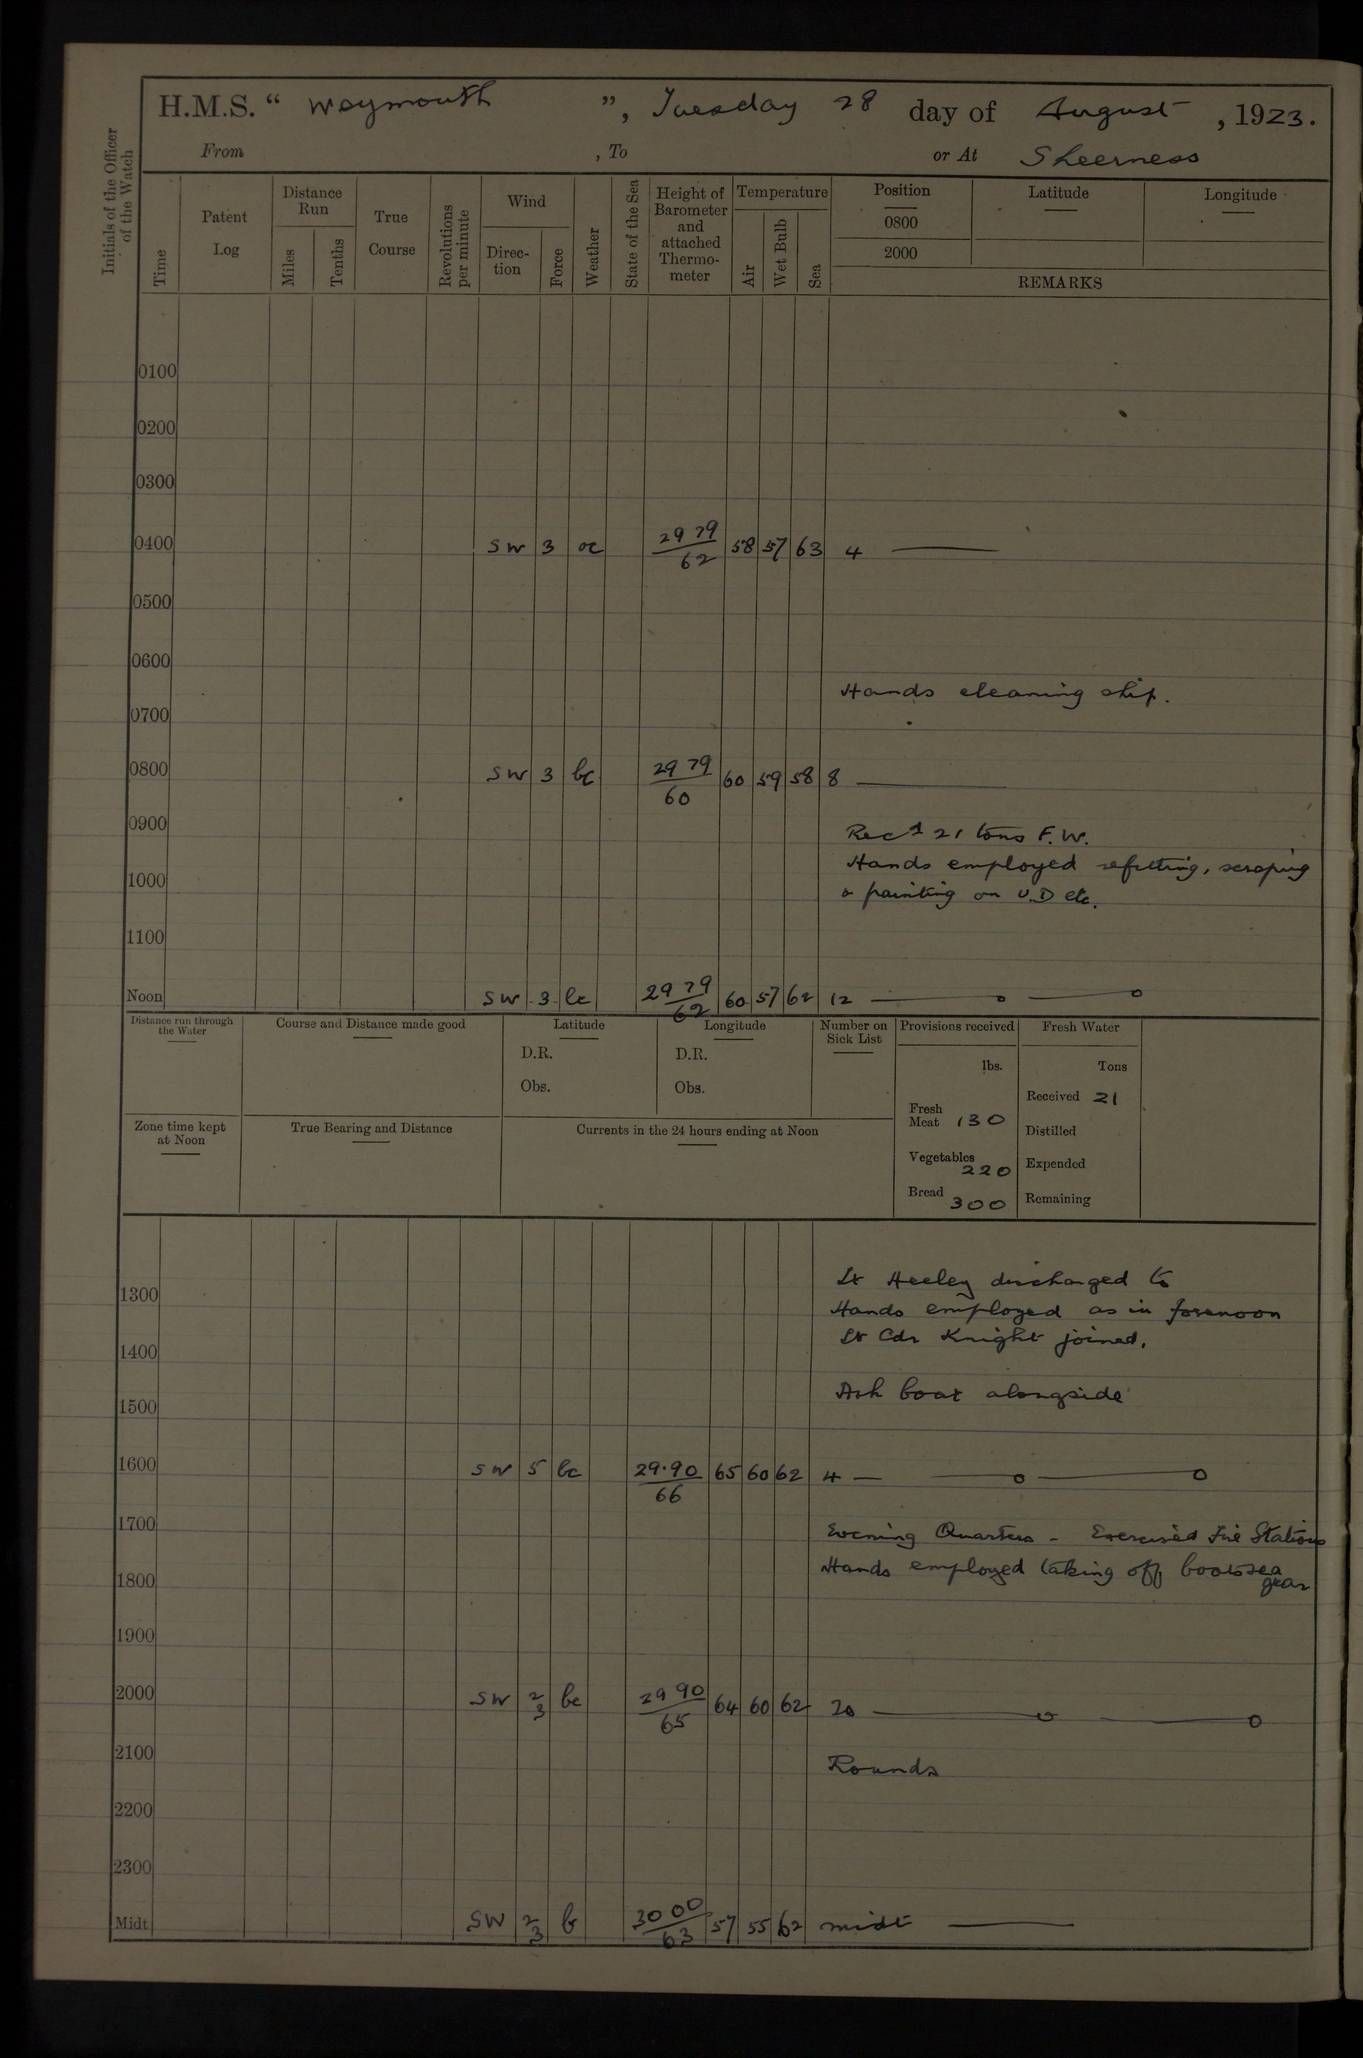 H.M.S. " Weymouth ", Tuesday 28 day of August , 1923.
From , To or At Sheerness
Initials of the Officer of the Watch
Time
Patent Log
Distance Run
Miles
Tenths
True Course
Revolutions per minute
Wind
Direction
Force
Weather
State of the Sea
Height of Barometer and attached Thermometer
Temperature
Air
Wet Bulb
Sea
Position Latitude Longitude
0800
2000
REMARKS
0100
0200
0300
0400 SW 3 oc 29 79/62 58 57 63 4
0500
0600
Hands cleaning ship.
0700
0800 SW 3 bc 29 79/60 60 59 58 8
0900
Recd 21 tons F.W.
Hands employed refitting, scraping
1000
& painting on U.D etc.
1100
Noon SW 3 bc 29 79/62 60 57 62 12
Distance run through the Water
Course and Distance made good
Latitude
D.R.
Obs.
Longitude
D.R.
Obs.
Number on Sick List
Provisions received
lbs.
Fresh Meat 130
Vegetables 220
Bread 300
Fresh Water
Tons
Received 21
Distilled
Expended
Remaining
Zone time kept at Noon
True Bearing and Distance
Currents in the 24 hours ending at Noon
Lt Heeley discharged to
1300
Hands employed as in forenoon
Lt Cdr Knight joined.
1400
Ash boat alongside
1500
1600 SW 5 bc 29.90/66 65 60 62 4
1700
Evening Quarters - Exercised Fire Stations
Hands employed taking off boats sea gear
1800
1900
2000 SW 2/3 bc 29 90/65 64 60 62 20
2100
Rounds
2200
2300
Midt SW 2/3 b 30 00/63 57 55 62 midt